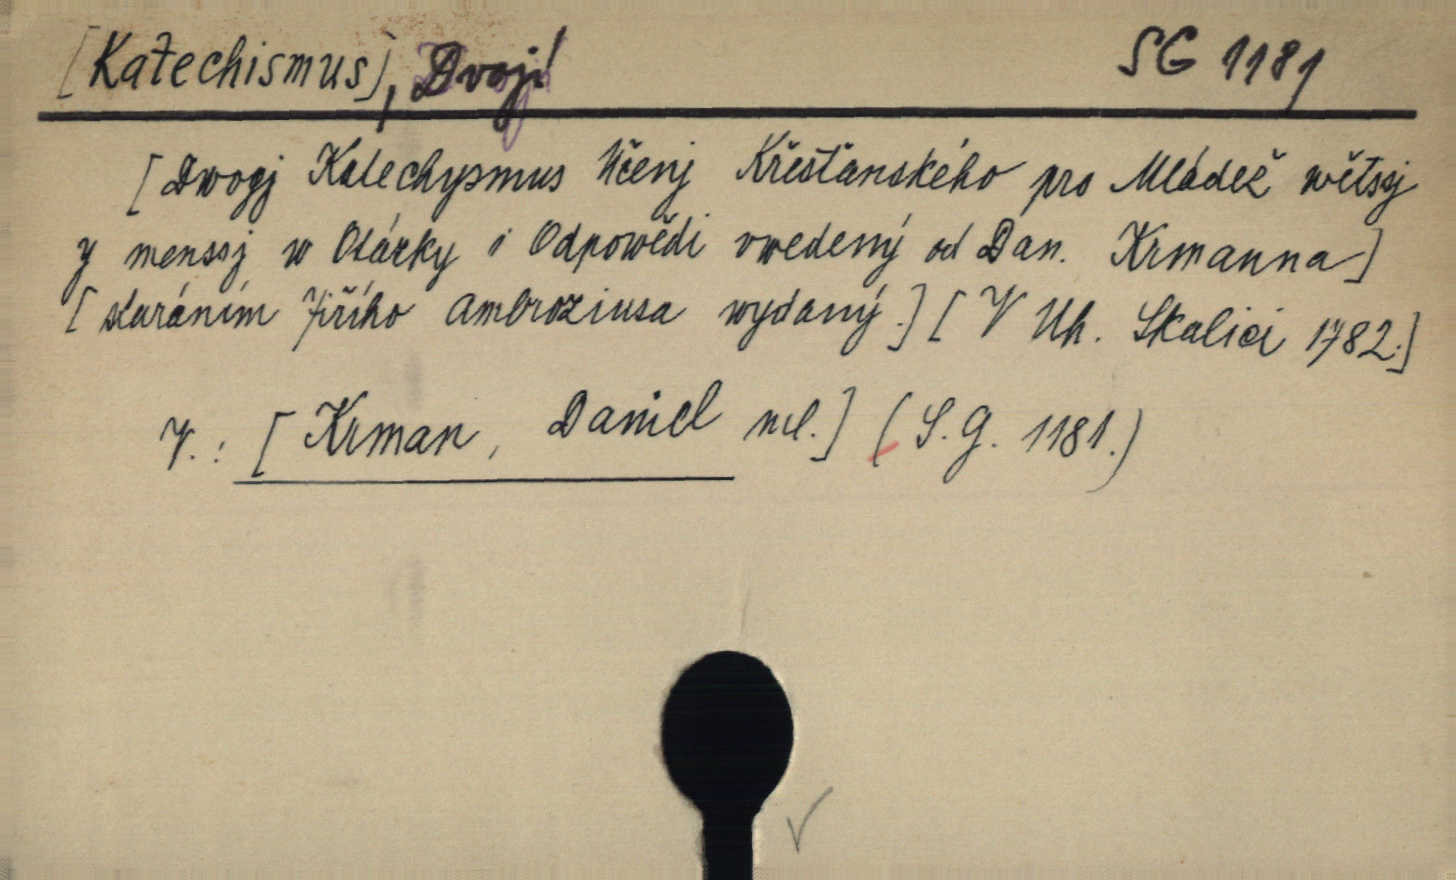 [Katechismus], Dvojí
SG 1181
[Dwogj Katechysmus Učenj Křestťanského pro Mládež wětssj
y menssj w Otázky i Odpowědi uwedený od Dan. Krmanna]
[staráním Jiřího Ambroziusa wydaný.] [V Uh. Skalici 1782.]
V.: [Krman, Daniel ml.] (S.G. 1181.)